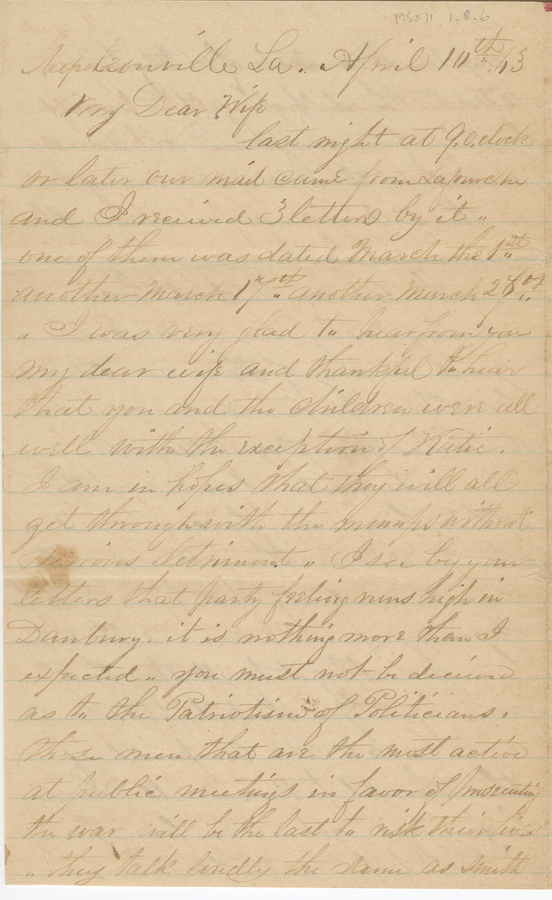 MS011 1.8.6
Napoleonville La. April 10th 63
Very Dear Wife
last night at 9,o,clock
or later our mail came from Lafourche
and I received 3 letters by it "
one of them was dated March the 1st "
another March 17th " another March 28th "
" I was very glad to hear from you
my dear wife and thankful to hear
that you and the children were all
well with the exception of Katie.
I am in hopes that they will all
get through with the mumps without
serious detriment " I see by your
letters that party feeling runs high in
Danbury. it is nothing more than I
expected " you must not be deceived
as to the Patriotism of Politicians.
those men that are the most active
at public meetings in favor of prosecuting
the war will be the last to risk their lives
" they talk loudly the same as Smith